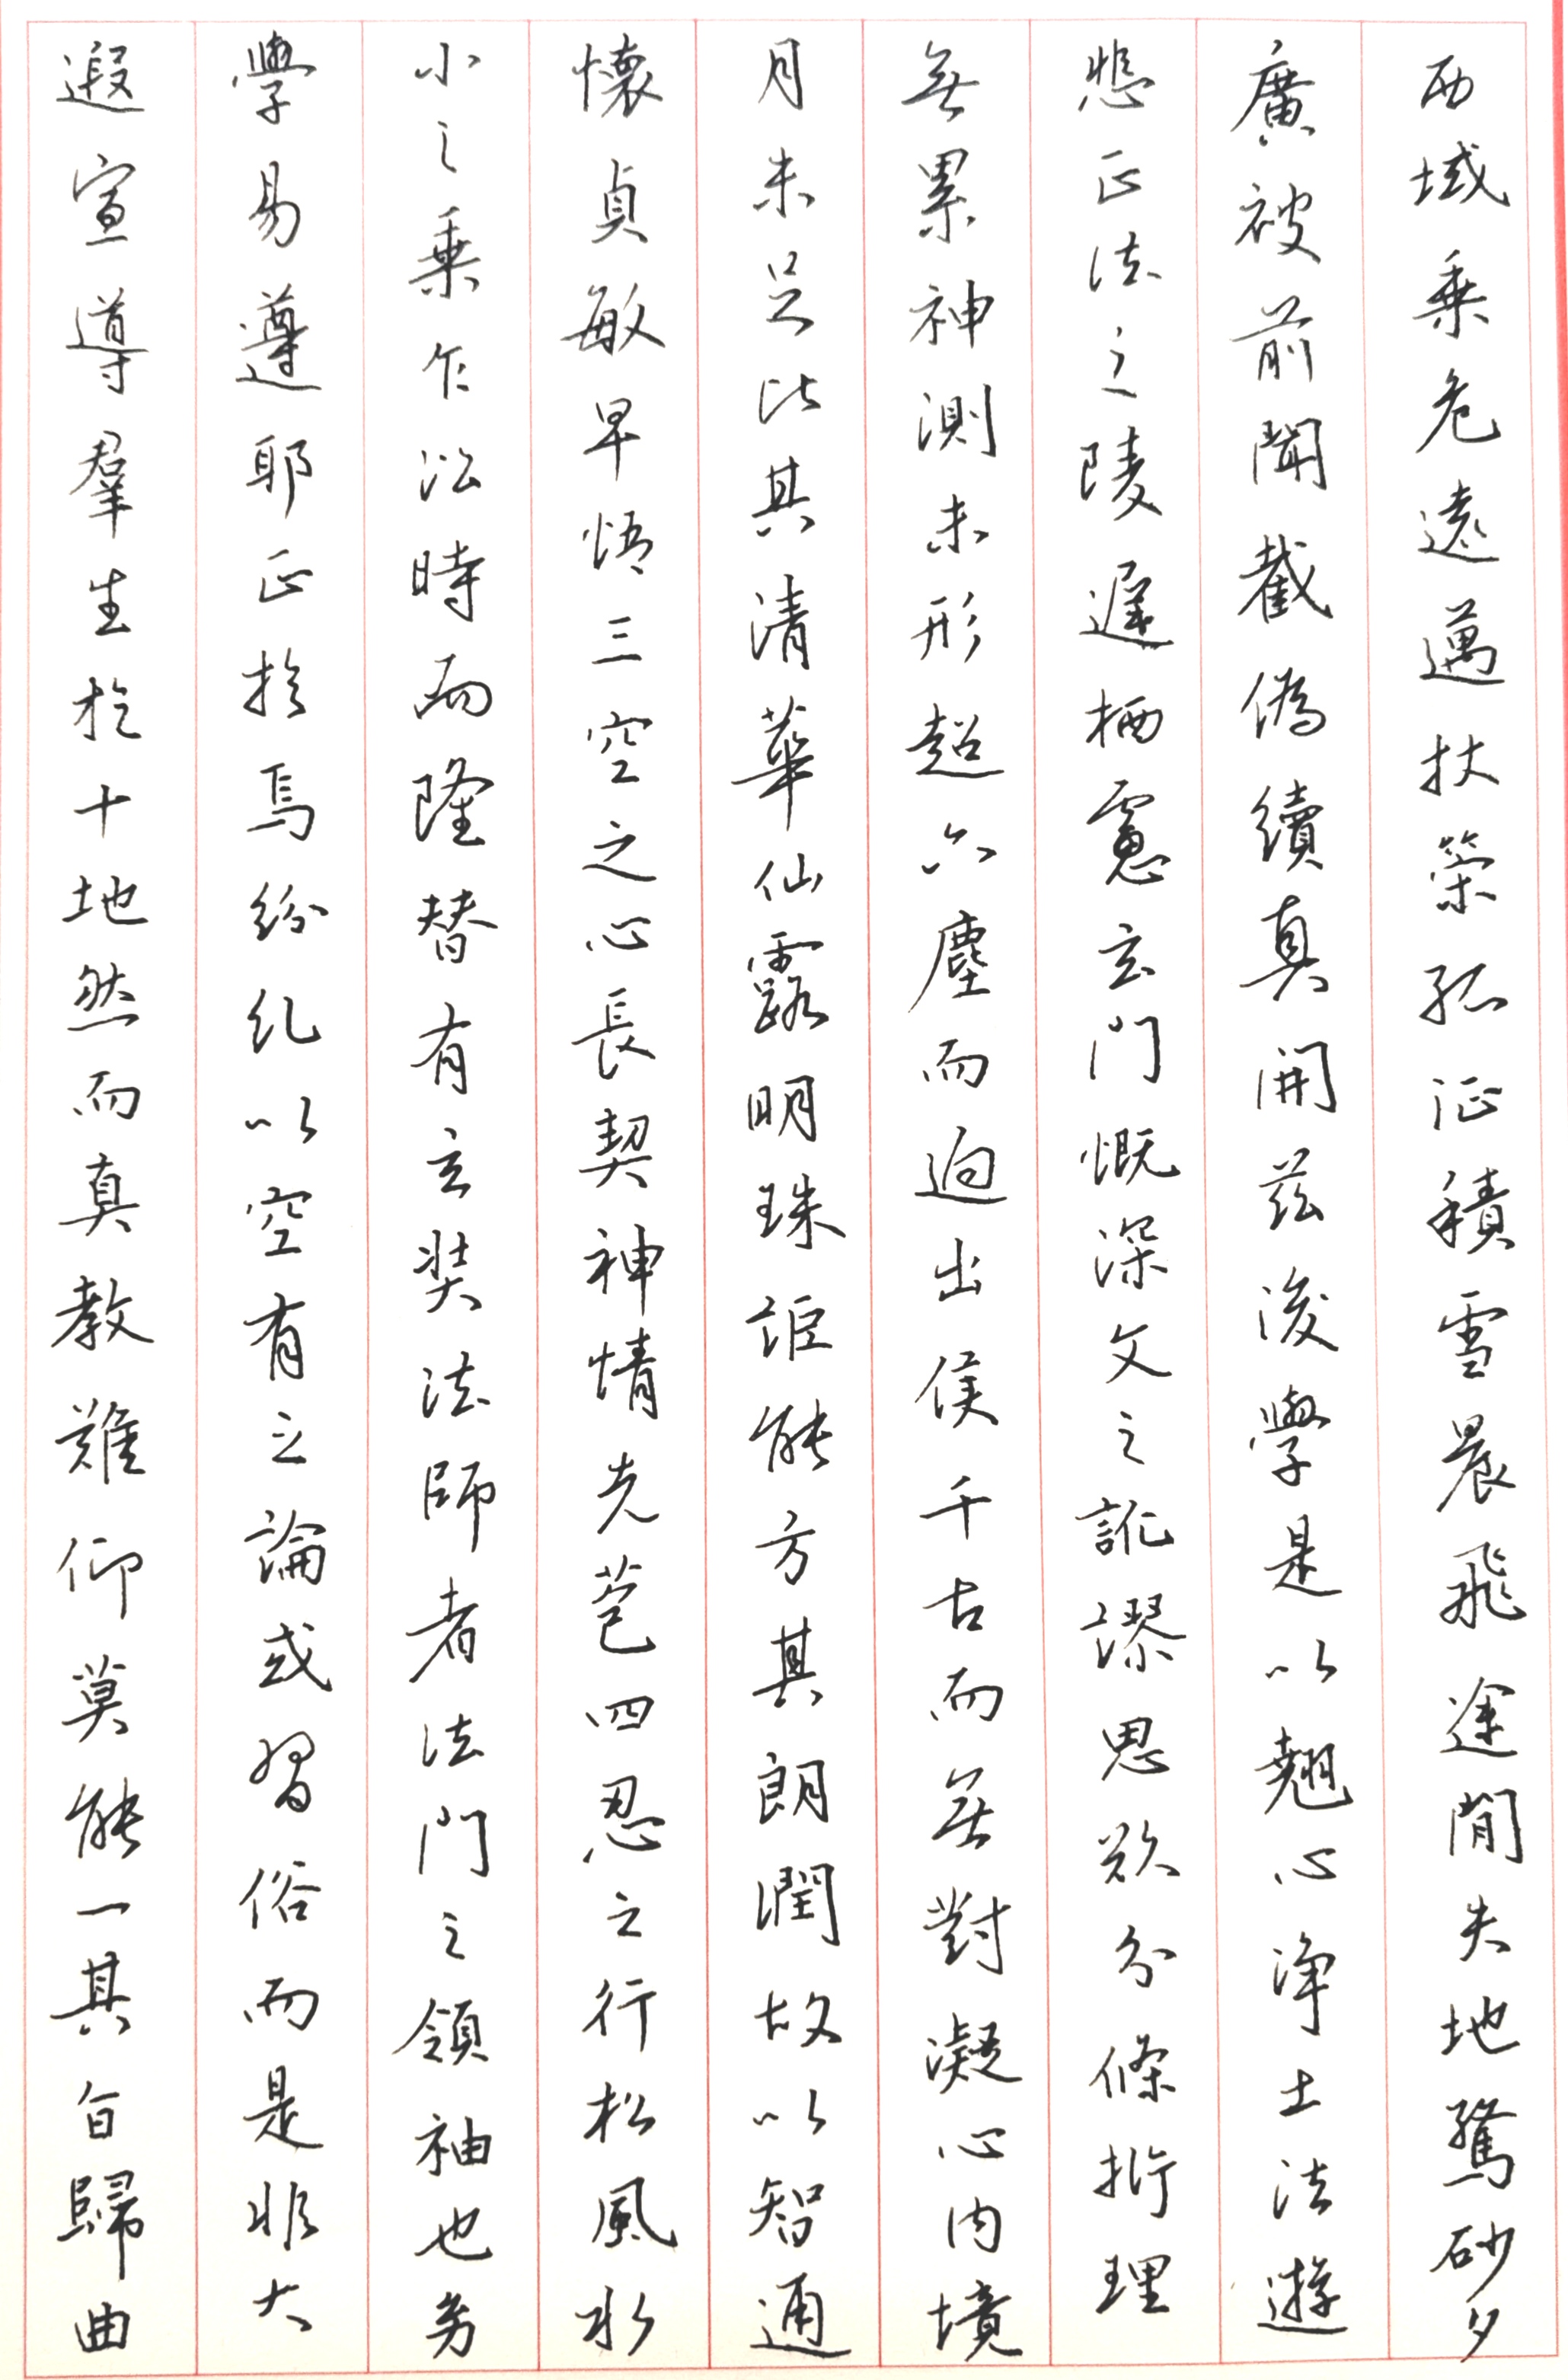 遐宣導羣生於十地然而真教難仰莫能一其旨歸曲
學易遵耶正於焉紛糺以空有之論或習俗而是非大
小之乘乍沿時而隆替有玄奘法師者法門之領袖也幼
懷貞敏早悟三空之心長契神情先苞四忍之行松風水
月未足比其清華仙露明珠詎能方其朗潤故以智通
無累神測未形超六塵而迥出隻千古而無對凝心內境
悲正法之陵遲栖慮玄門慨深文之訛謬思欲分條析理
廣彼前聞截偽續真開茲後學是以翹心淨土法遊
西域乘危遠邁杖策孤征積雪晨飛途閒失地驚砂夕